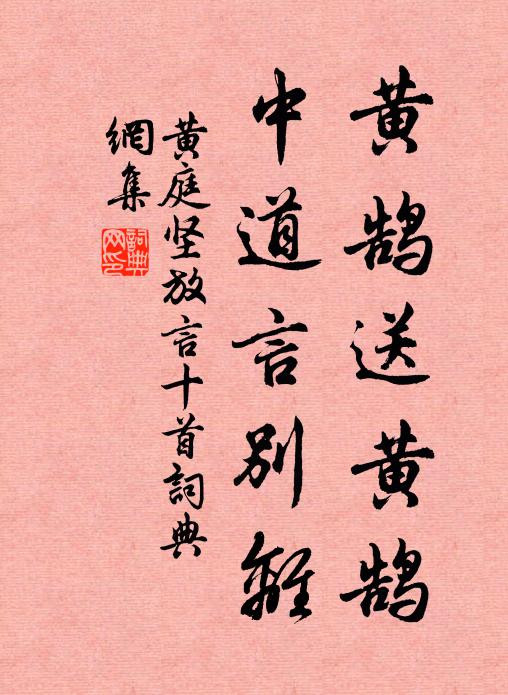 黄鹄送黄鹄
中道言别離
黄庭坚放言十首詞典
網集
詞典網印